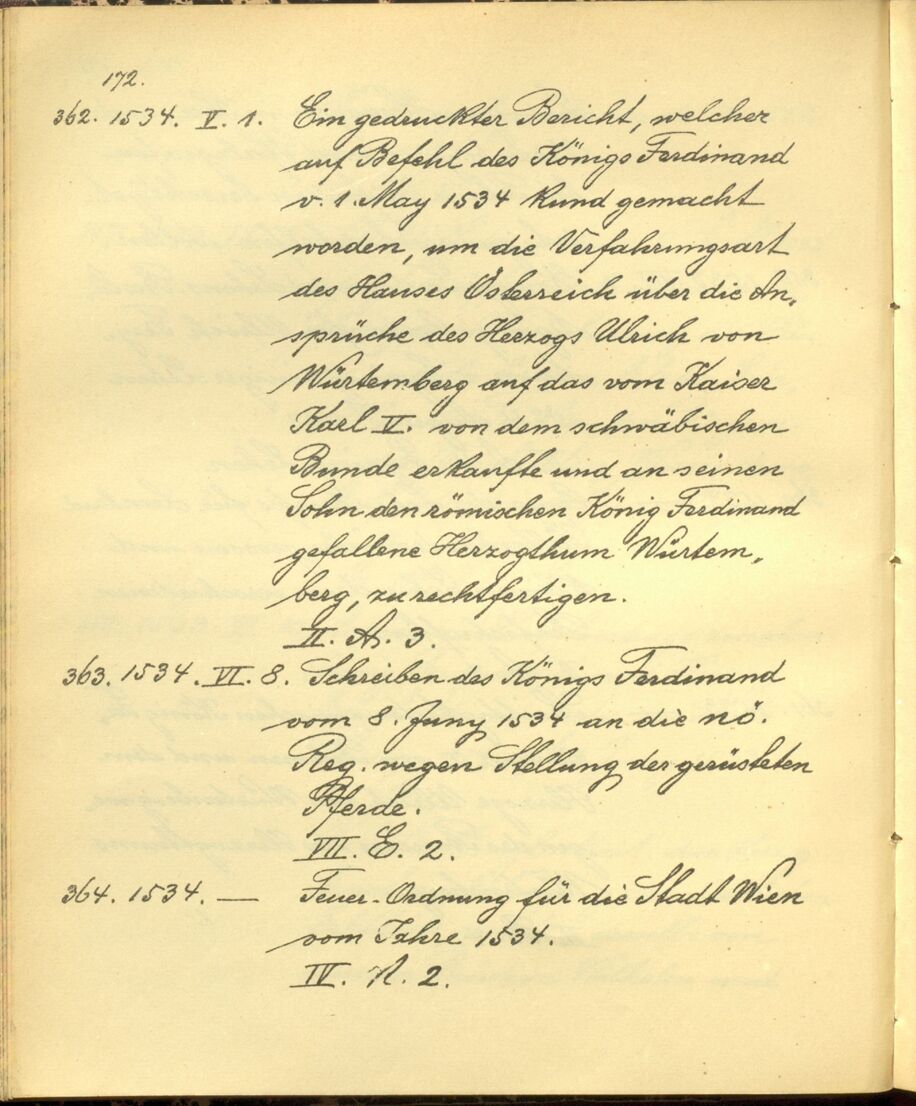 172.
362. 1534. V. 1. Ein gedruckter Bericht, welcher
auf Befehl des Königs Ferdinand
v. 1. May 1534 kund gemacht
worden, um die Verfahrungsart
des Hauses Österreich über die An„
sprüche des Herzogs Ulrich von
Würtemberg auf das vom Kaiser
Karl V. von dem schwäbischen
Bunde erkaufte und an seinen
Sohn den römischen König Ferdinand
gefallene Herzogthum Würtem„
berg, zu rechtfertigen.
II. A. 3.
363. 1534. VI. 8. Schreiben des Königs Ferdinand
vom 8. Juny 1534 an die nö.
Reg. wegen Stellung der gerüsteten
Pferde.
VII. E. 2.
364. 1534. — Feuer-Ordnung für die Stadt Wien
vom Jahre 1534.
IV. N. 2.